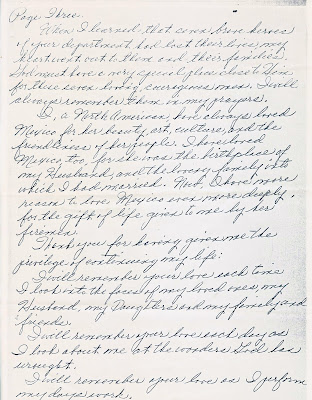 Page Three.
When I learned, that seven brave heroes
of your department had lost their lives, my
heart went out to them and their families.
God must have a very special place close to Him
for these seven loving, courageous men. I will
always remember them in my prayers.
I, a North American, have always loved
Mexico for her beauty, art, culture, and the
friendliness of her people. I have loved
Mexico, too, for she was the birthplace of
my Husband, and the lovely family into
which I had married. Now, I have more
reason to love Mexico even more deeply,
for the gift of life given to me by her
firemen.
Thank you for having given me the
privilege of continuing my life:
I will remember your love each time
I look into the faces of my loved ones, my
Husband, my Daughters and my family and
friends.
I will remember your love each day as
I look about me at the wonders God has
wrought.
I will remember your love as I perform
my days work.